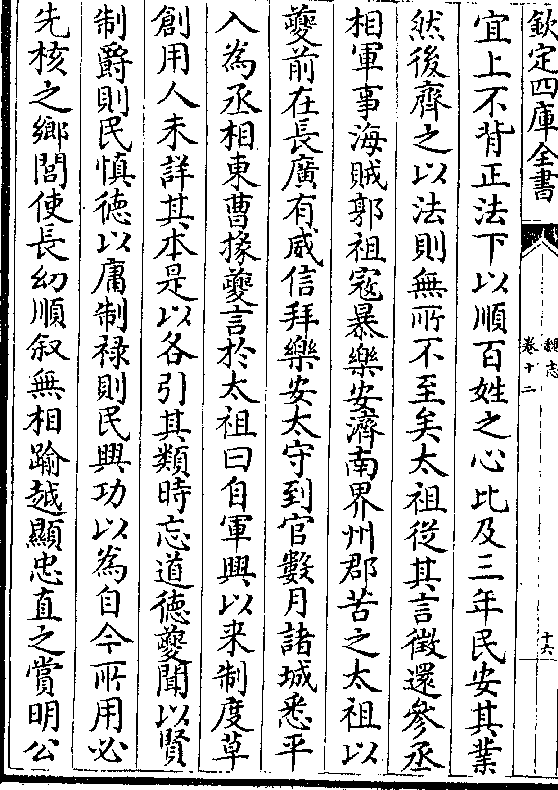 欽定四庫全書
魏志
卷十二
十六
宜上不背正法下以順百姓之心比及三年民安其業
然後齊之以法則無所不至矣太祖從其言徵還參丞
相軍事海賊郭祖寇暴樂安濟南界州郡苦之太祖以
夔前在長廣有威信拜樂安太守到官數月諸城悉平
入為丞相東曹掾夔言於太祖曰自軍興以来制度草
創用人未詳其本是以各引其類時忘道德夔聞以賢
制爵則民慎德以庸制禄則民興功以為自今所用必
先核之鄉閭使長幼順叙無相踰越顯忠直之賞明公